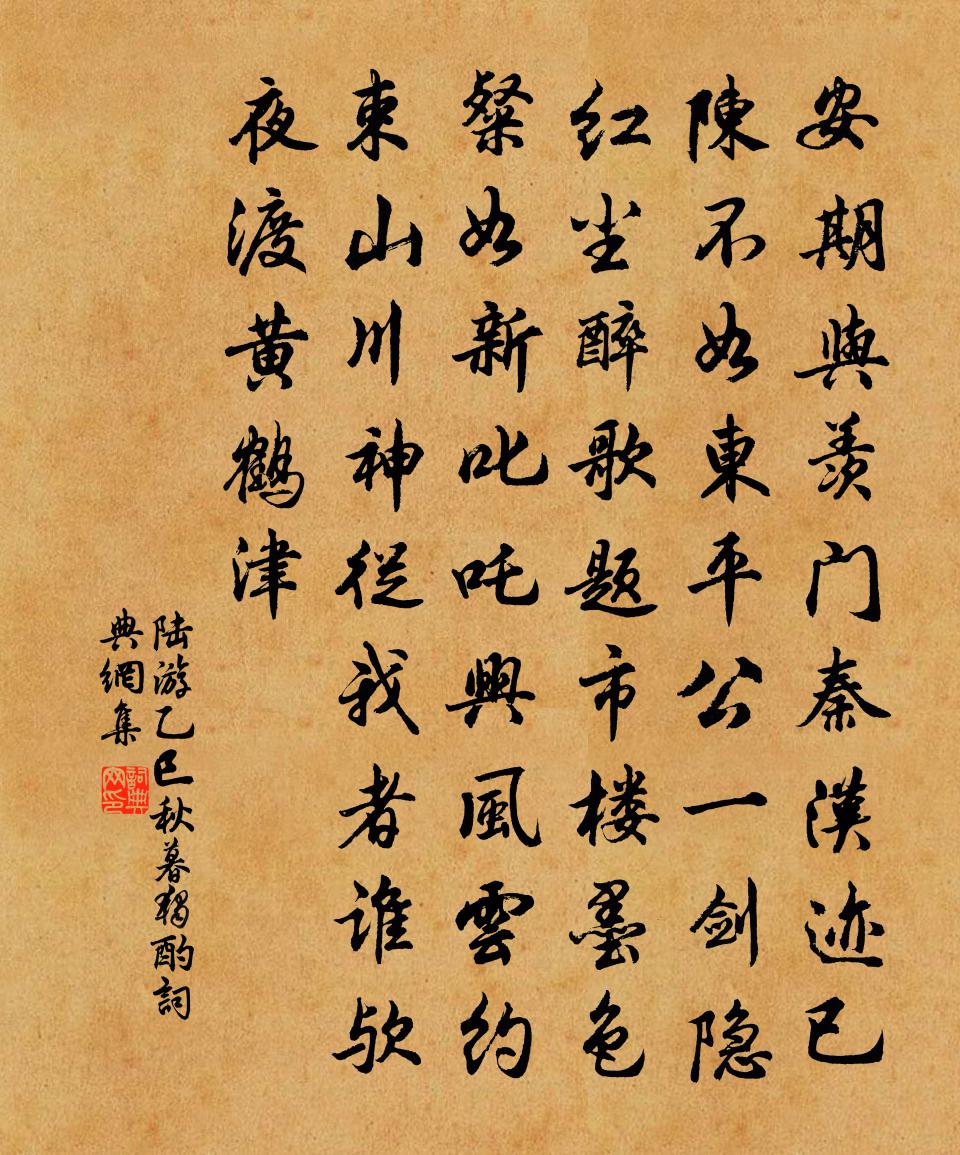 安期與羨门秦漢迹已
陳不如東平公一剑隐
红尘醉歌题市楼墨色
粲如新叱吒興風雲約
束山川神從我者誰欤
夜渡黄鶴津
陆游乙巳秋暮獨酌詞
典網集
詞典网印